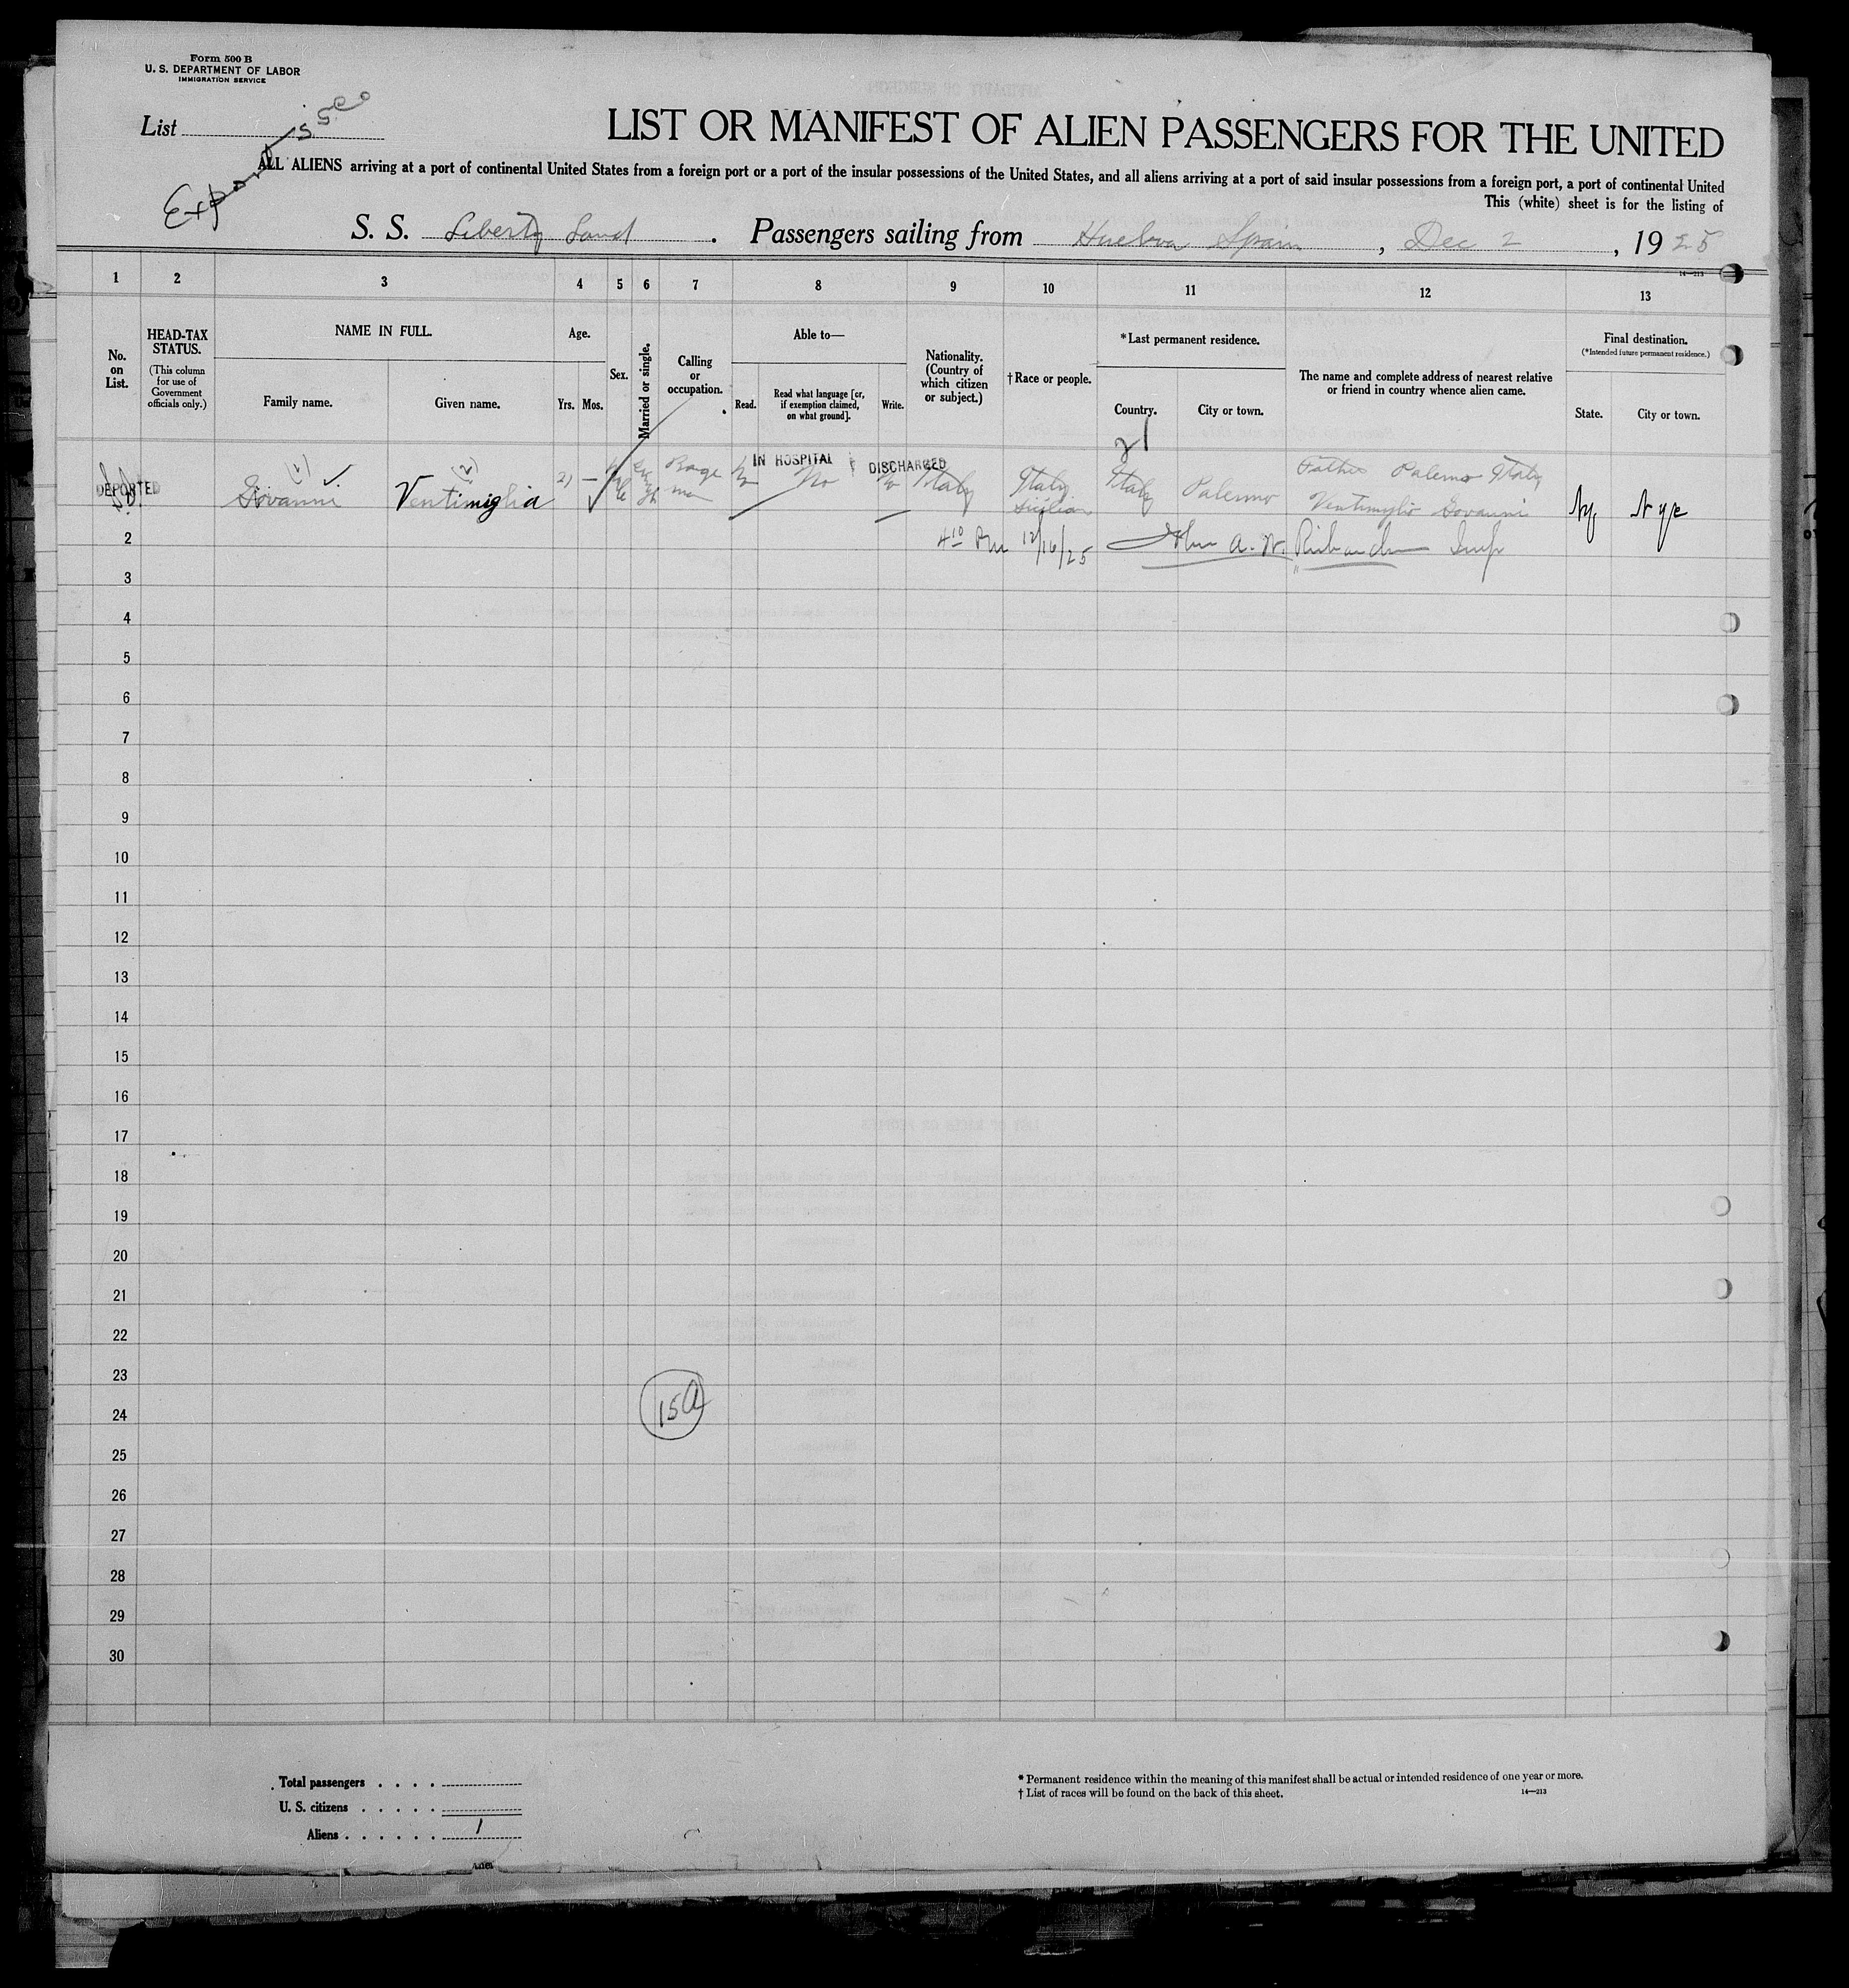 Form 500 B
U. S. DEPARTMENT OF LABOR
IMMIGRATION SERVICE
List
Export 5500
LIST OR MANIFEST OF ALIEN PASSENGERS FOR THE UNITED
ALL ALIENS arriving at a port of continental United States from a foreign port or a port of the insular possessions of the United States, and all aliens arriving at a port of said insular possessions from a foreign port, a port of continental United
This (white) sheet is for the listing of
S. S. Liberty Land . Passengers sailing from Huelva Spain , Dec 2 , 1925
14—213
1 2 3 4 5 6 7 8 9 10 11 12 13
No. on List.
HEAD-TAX STATUS.
(This column for use of Government officials only.)
NAME IN FULL.
Family name. Given name.
Age.
Yrs. Mos.
Sex.
Married or single.
Calling or occupation.
Able to—
Read. Read what language [or, if exemption claimed, on what ground]. Write.
Nationality. (Country of which citizen or subject.)
† Race or people.
* Last permanent residence.
Country. City or town.
The name and complete address of nearest relative or friend in country whence alien came.
Final destination.
(* Intended future permanent residence.)
State. City or town.
21
IN HOSPITAL DISCHARGED
DEPORTED
(1) (2)
Govanni Ventimiglia 21 — No No Italy Italy Italy Palermo Father Palermo Italy
Sicilian Ventimiglia Govanni Ny N Y C
2 4 10 PM 12/16/25 John A. W. Richardson Insp
3
4
5
6
7
8
9
10
11
12
13
14
15
16
17
18
19
20
21
22
23
15A
24
25
26
27
28
29
30
Total passengers . . . .
U. S. citizens . . . . .
Aliens . . . . . . 1
* Permanent residence within the meaning of this manifest shall be actual or intended residence of one year or more.
† List of races will be found on the back of this sheet.
14—213